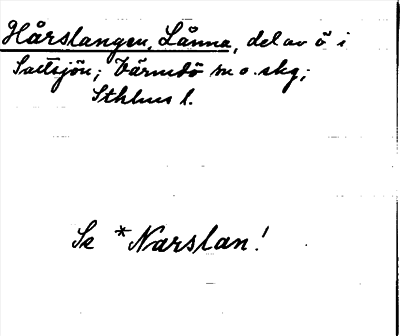 Hårslangen, Länna, del av ö i
Saltsjön; Värmdö m. o. skg;
Sthlms l.
Se *Narslan!